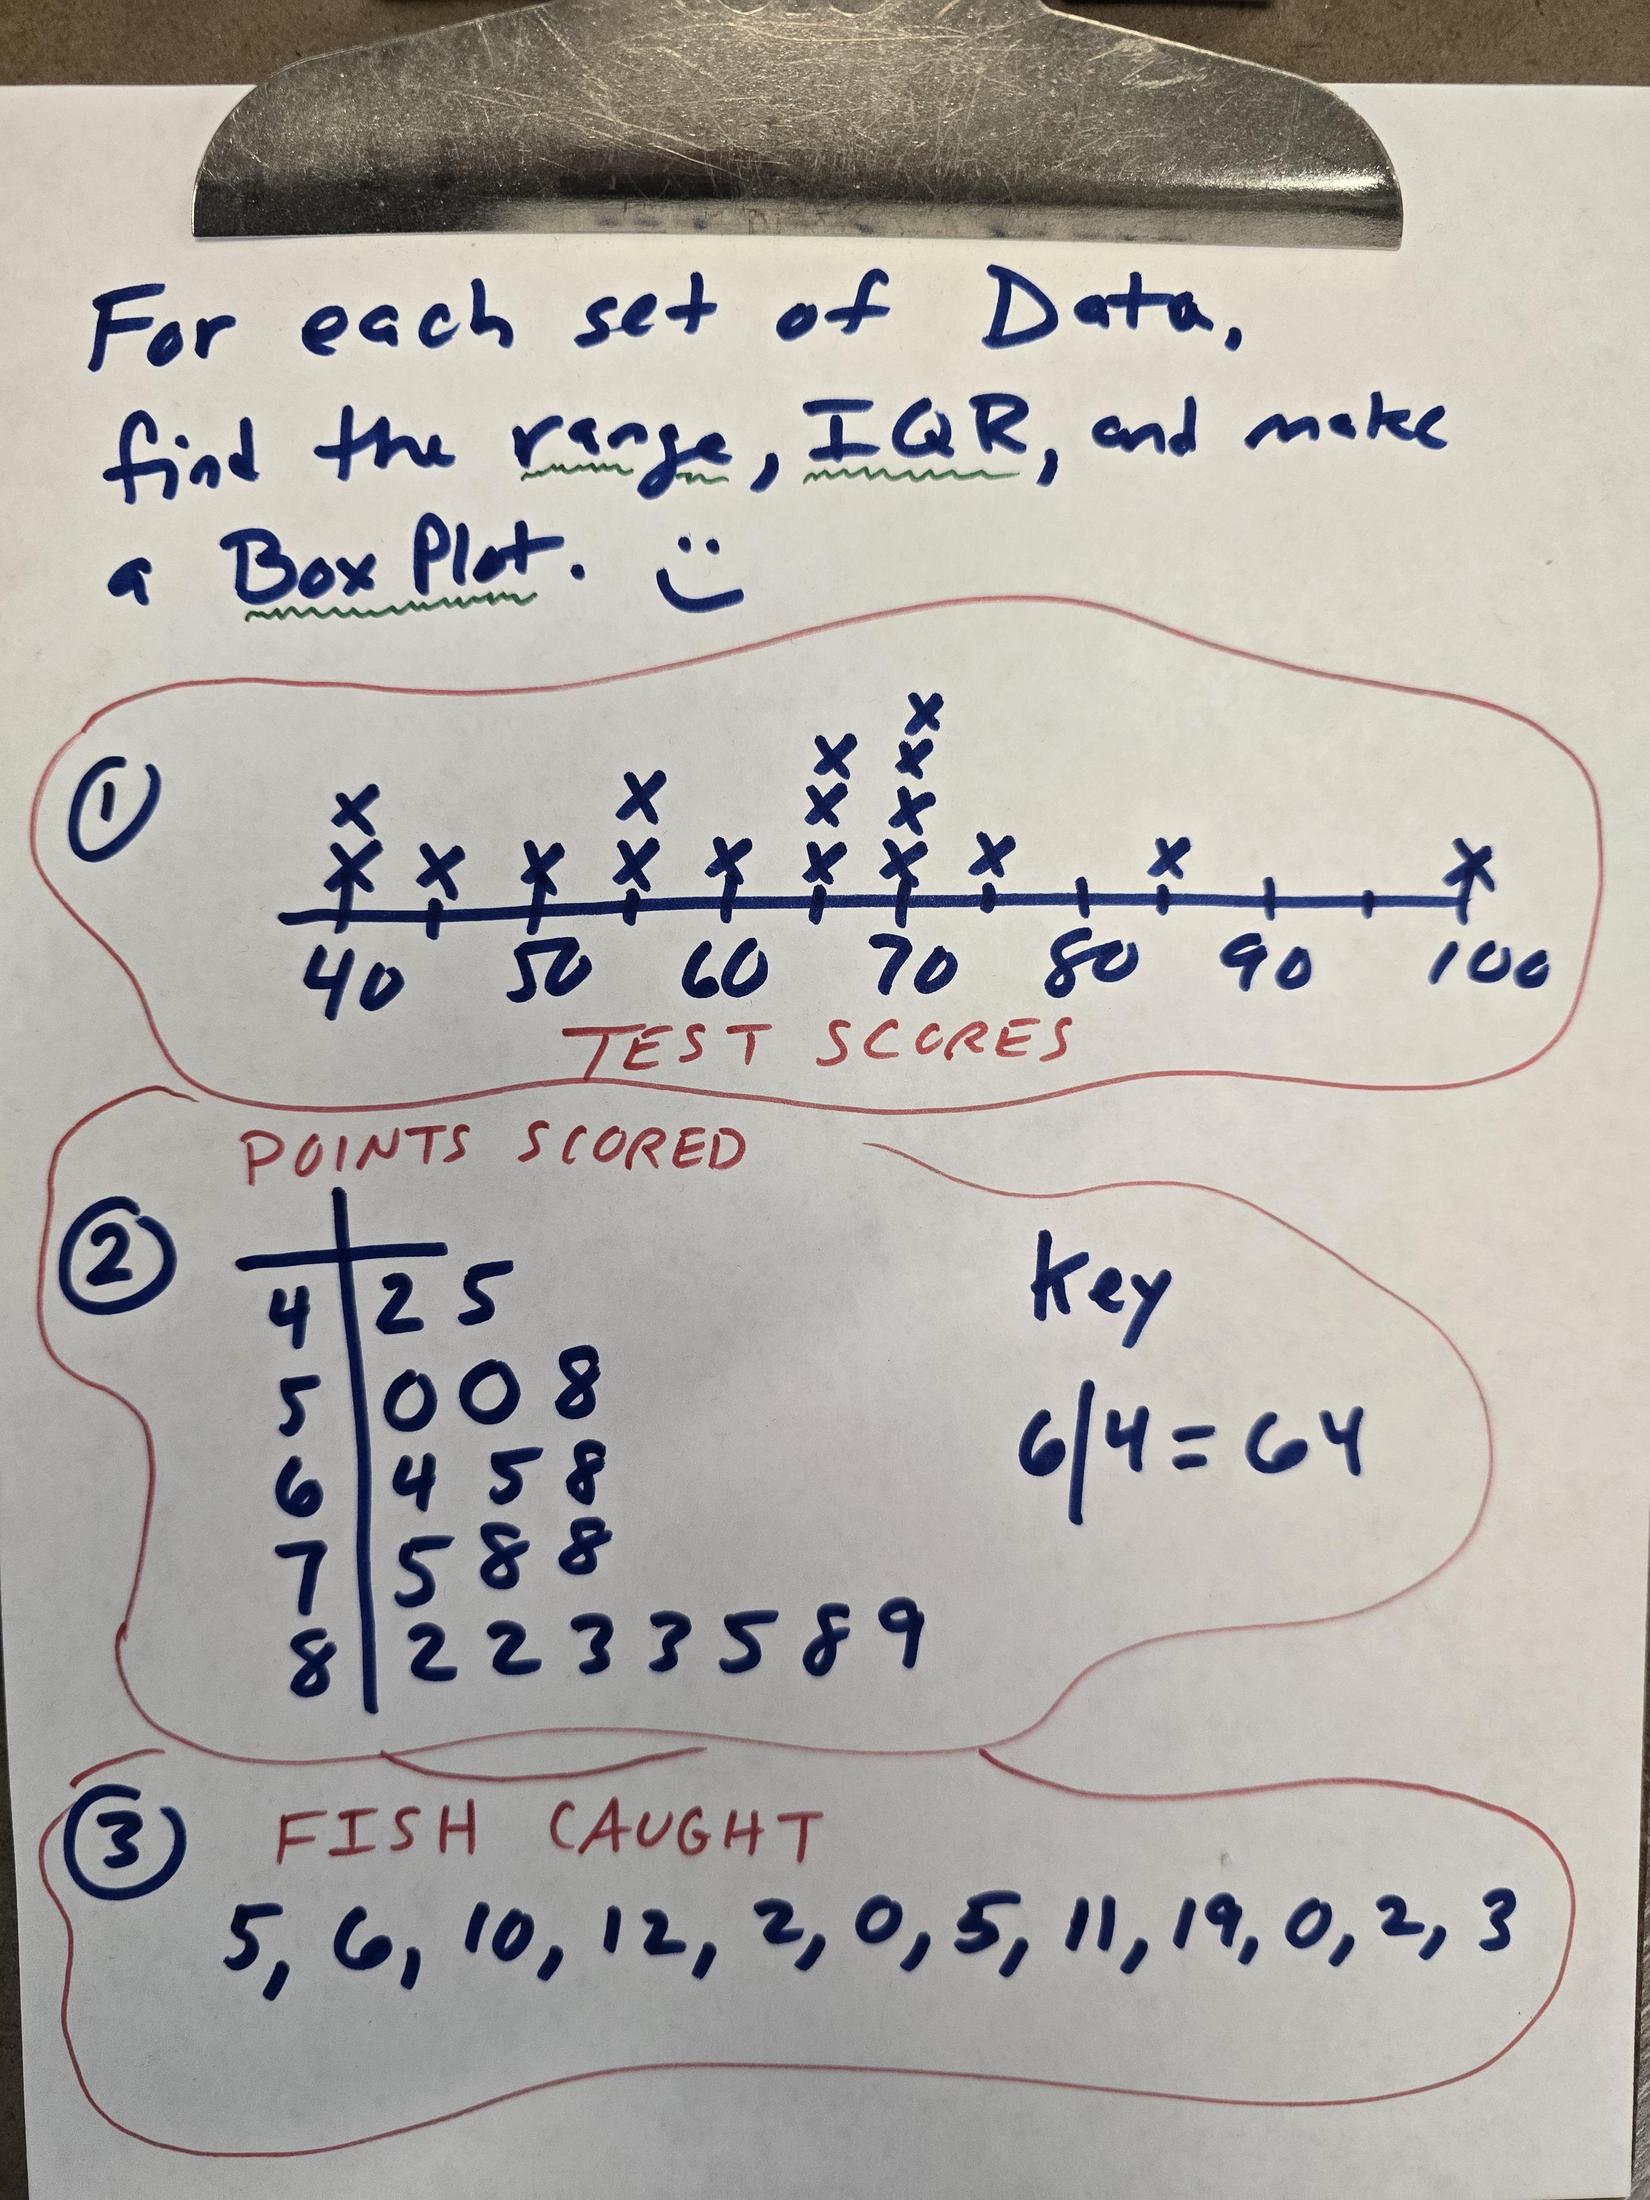 For each set of Data,
find the range, IQR, and make
a Box Plot.
1
40 50 60 70 80 90 100
TEST SCORES
POINTS SCORED
2
4 | 2 5
5 | 0 0 8
6 | 4 5 8
7 | 5 8 8
8 | 2 2 3 3 5 8 9
Key
6|4 = 64
3 FISH CAUGHT
5, 6, 10, 12, 2, 0, 5, 11, 19, 0, 2, 3